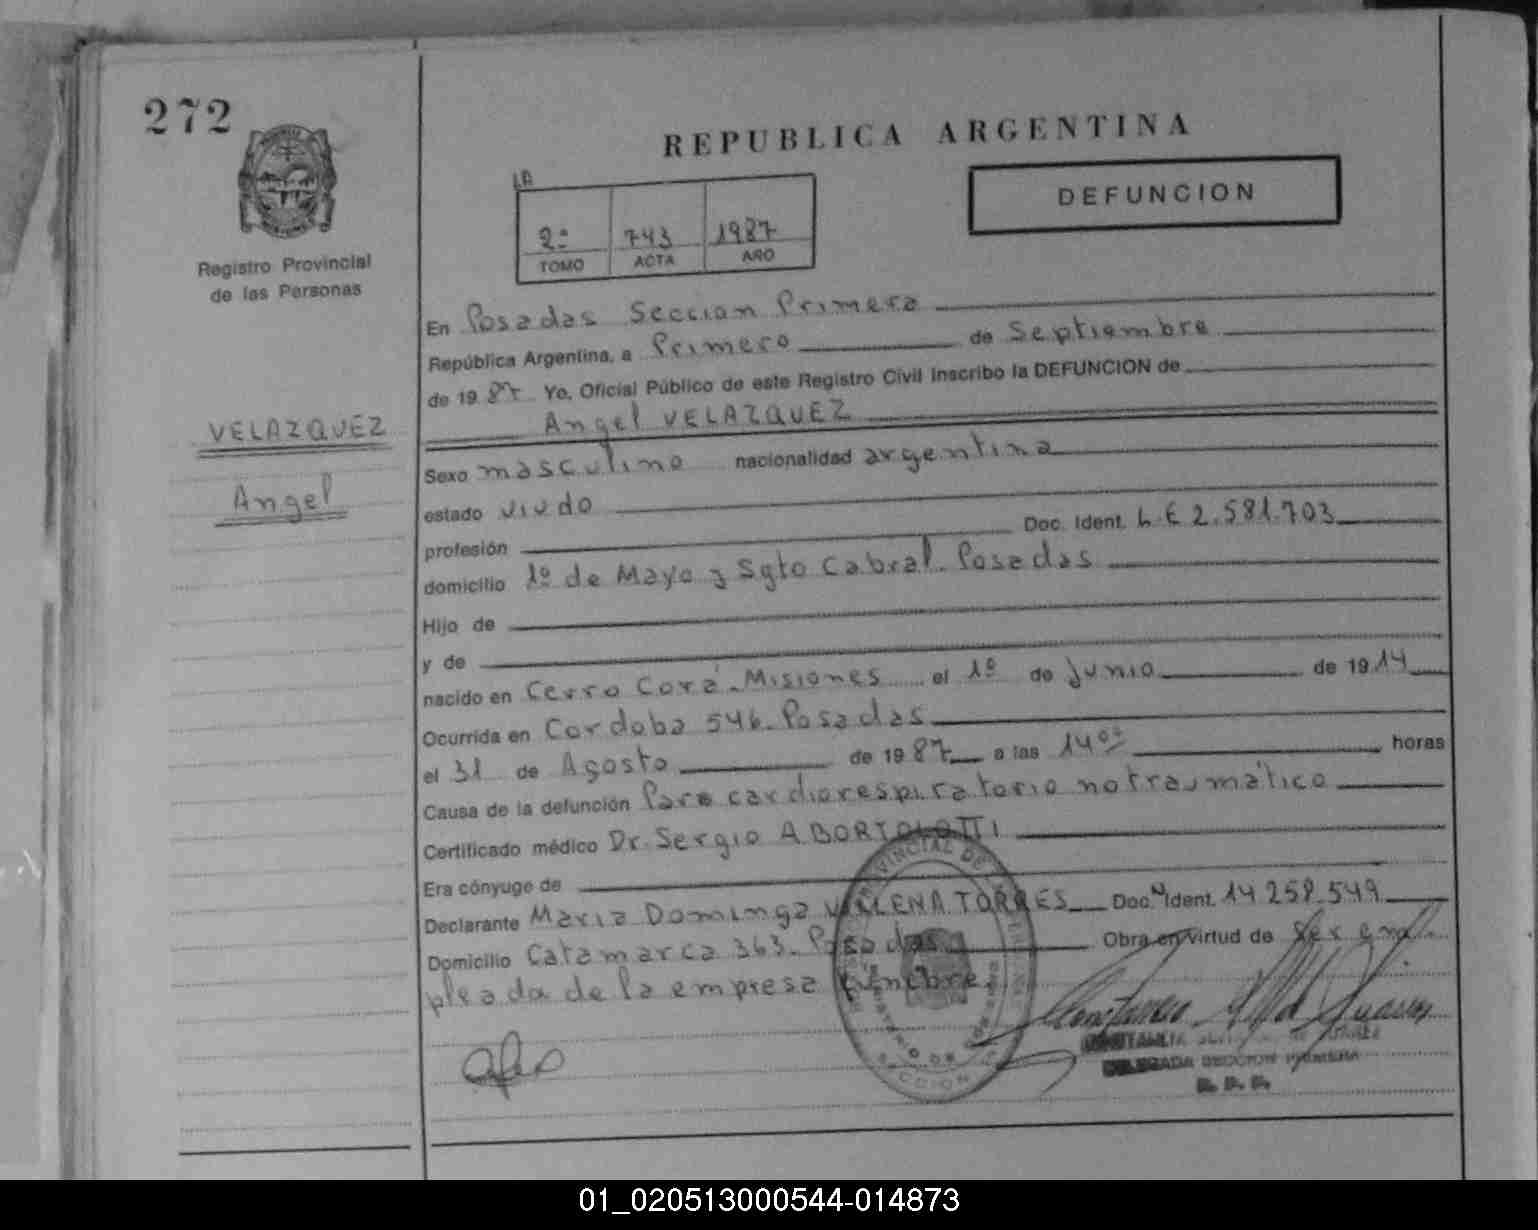 272
REPUBLICA ARGENTINA
DEFUNCION
LA
2º 743 1987
TOMO ACTA AÑO
Registro Provincial
de las Personas
VELAZQUEZ
Angel
En Posadas Sección Primera
República Argentina, a Primero de Septiembre
de 19 87 Yo, Oficial Público de este Registro Civil inscribo la DEFUNCION de
Angel VELAZQUEZ
Sexo masculino nacionalidad argentina
estado viudo
profesión Doc. Ident. L.E 2.581.703
domicilio 1º de Mayo y Sgto Cabral. Posadas
Hijo de
y de
nacido en Cerro Corá - Misiones el 1º de Junio de 19 14
Ocurrida en Cordoba 546. Posadas
el 31 de Agosto de 19 87 a las 14 horas
Causa de la defunción Paro cardiorespiratorio no traumático
Certificado médico Dr. Sergio A BORTOLOTTI
Era cónyuge de
Declarante Maria Dominga TORRES Doc. Ident. 14 258.549
Domicilio Catamarca 363. Posadas Obra en virtud de ser em-
pleada de la empresa fúnebre
DELEGADA SECCION PRIMERA
R. P. P.
01_020513000544-014873